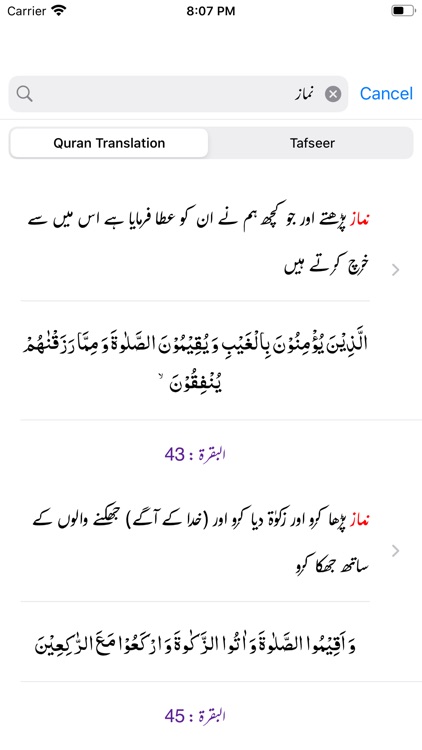 Carrier 8:07 PM
نماز Cancel
Quran Translation Tafseer
نماز پڑھتے اور جو کچھ ہم نے ان کو عطا فرمایا ہے اس میں سے
خرچ کرتے ہیں
الَّذِيْنَ يُؤْمِنُوْنَ بِالْغَيْبِ وَيُقِيْمُوْنَ الصَّلٰوةَ وَمِمَّا رَزَقْنٰھُمْ
يُنْفِقُوْنَ ۙ
البقرة : 43
نماز پڑھا کرو اور زکوٰة دیا کرو اور (خدا کے آگے) جھکنے والوں کے
ساتھ جھکا کرو
وَاَقِيْمُوا الصَّلٰوةَ وَاٰتُوا الزَّكٰوةَ وَارْكَعُوْا مَعَ الرّٰكِعِيْنَ
البقرة : 45